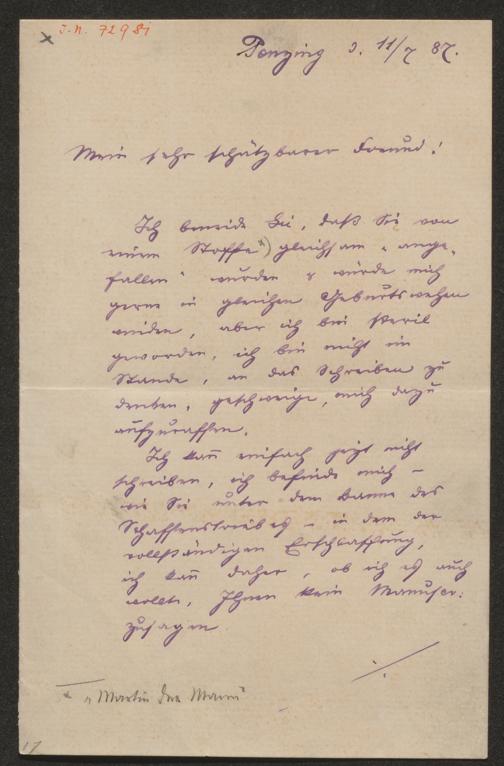 I.N. 72981
Penzing d. 11/7 87.
Mein sehr schätzbarer Freund!
Ich beneide Sie, daß Sie von
einem Stoffe *) gleichsam „ange-
fallen" wurden & würde mich
gerne in gleichen Geburtswehen
winden, aber ich bin steril
geworden, ich bin nicht im
Stande, an das Schreiben zu
denken, geschweige, mich dazu
aufzuraffen.
Ich kan̄ einfach jetzt nicht
schreiben, ich befinde mich –
wie Sie unter dem Banne des
Schaffenstriebes – in dem der
vollständigen Erschlaffung,
ich kan̄ daher, ob ich es auch
wollte, Ihnen kein Manuscr:
zusagen.
* „Martin der Mann"
17